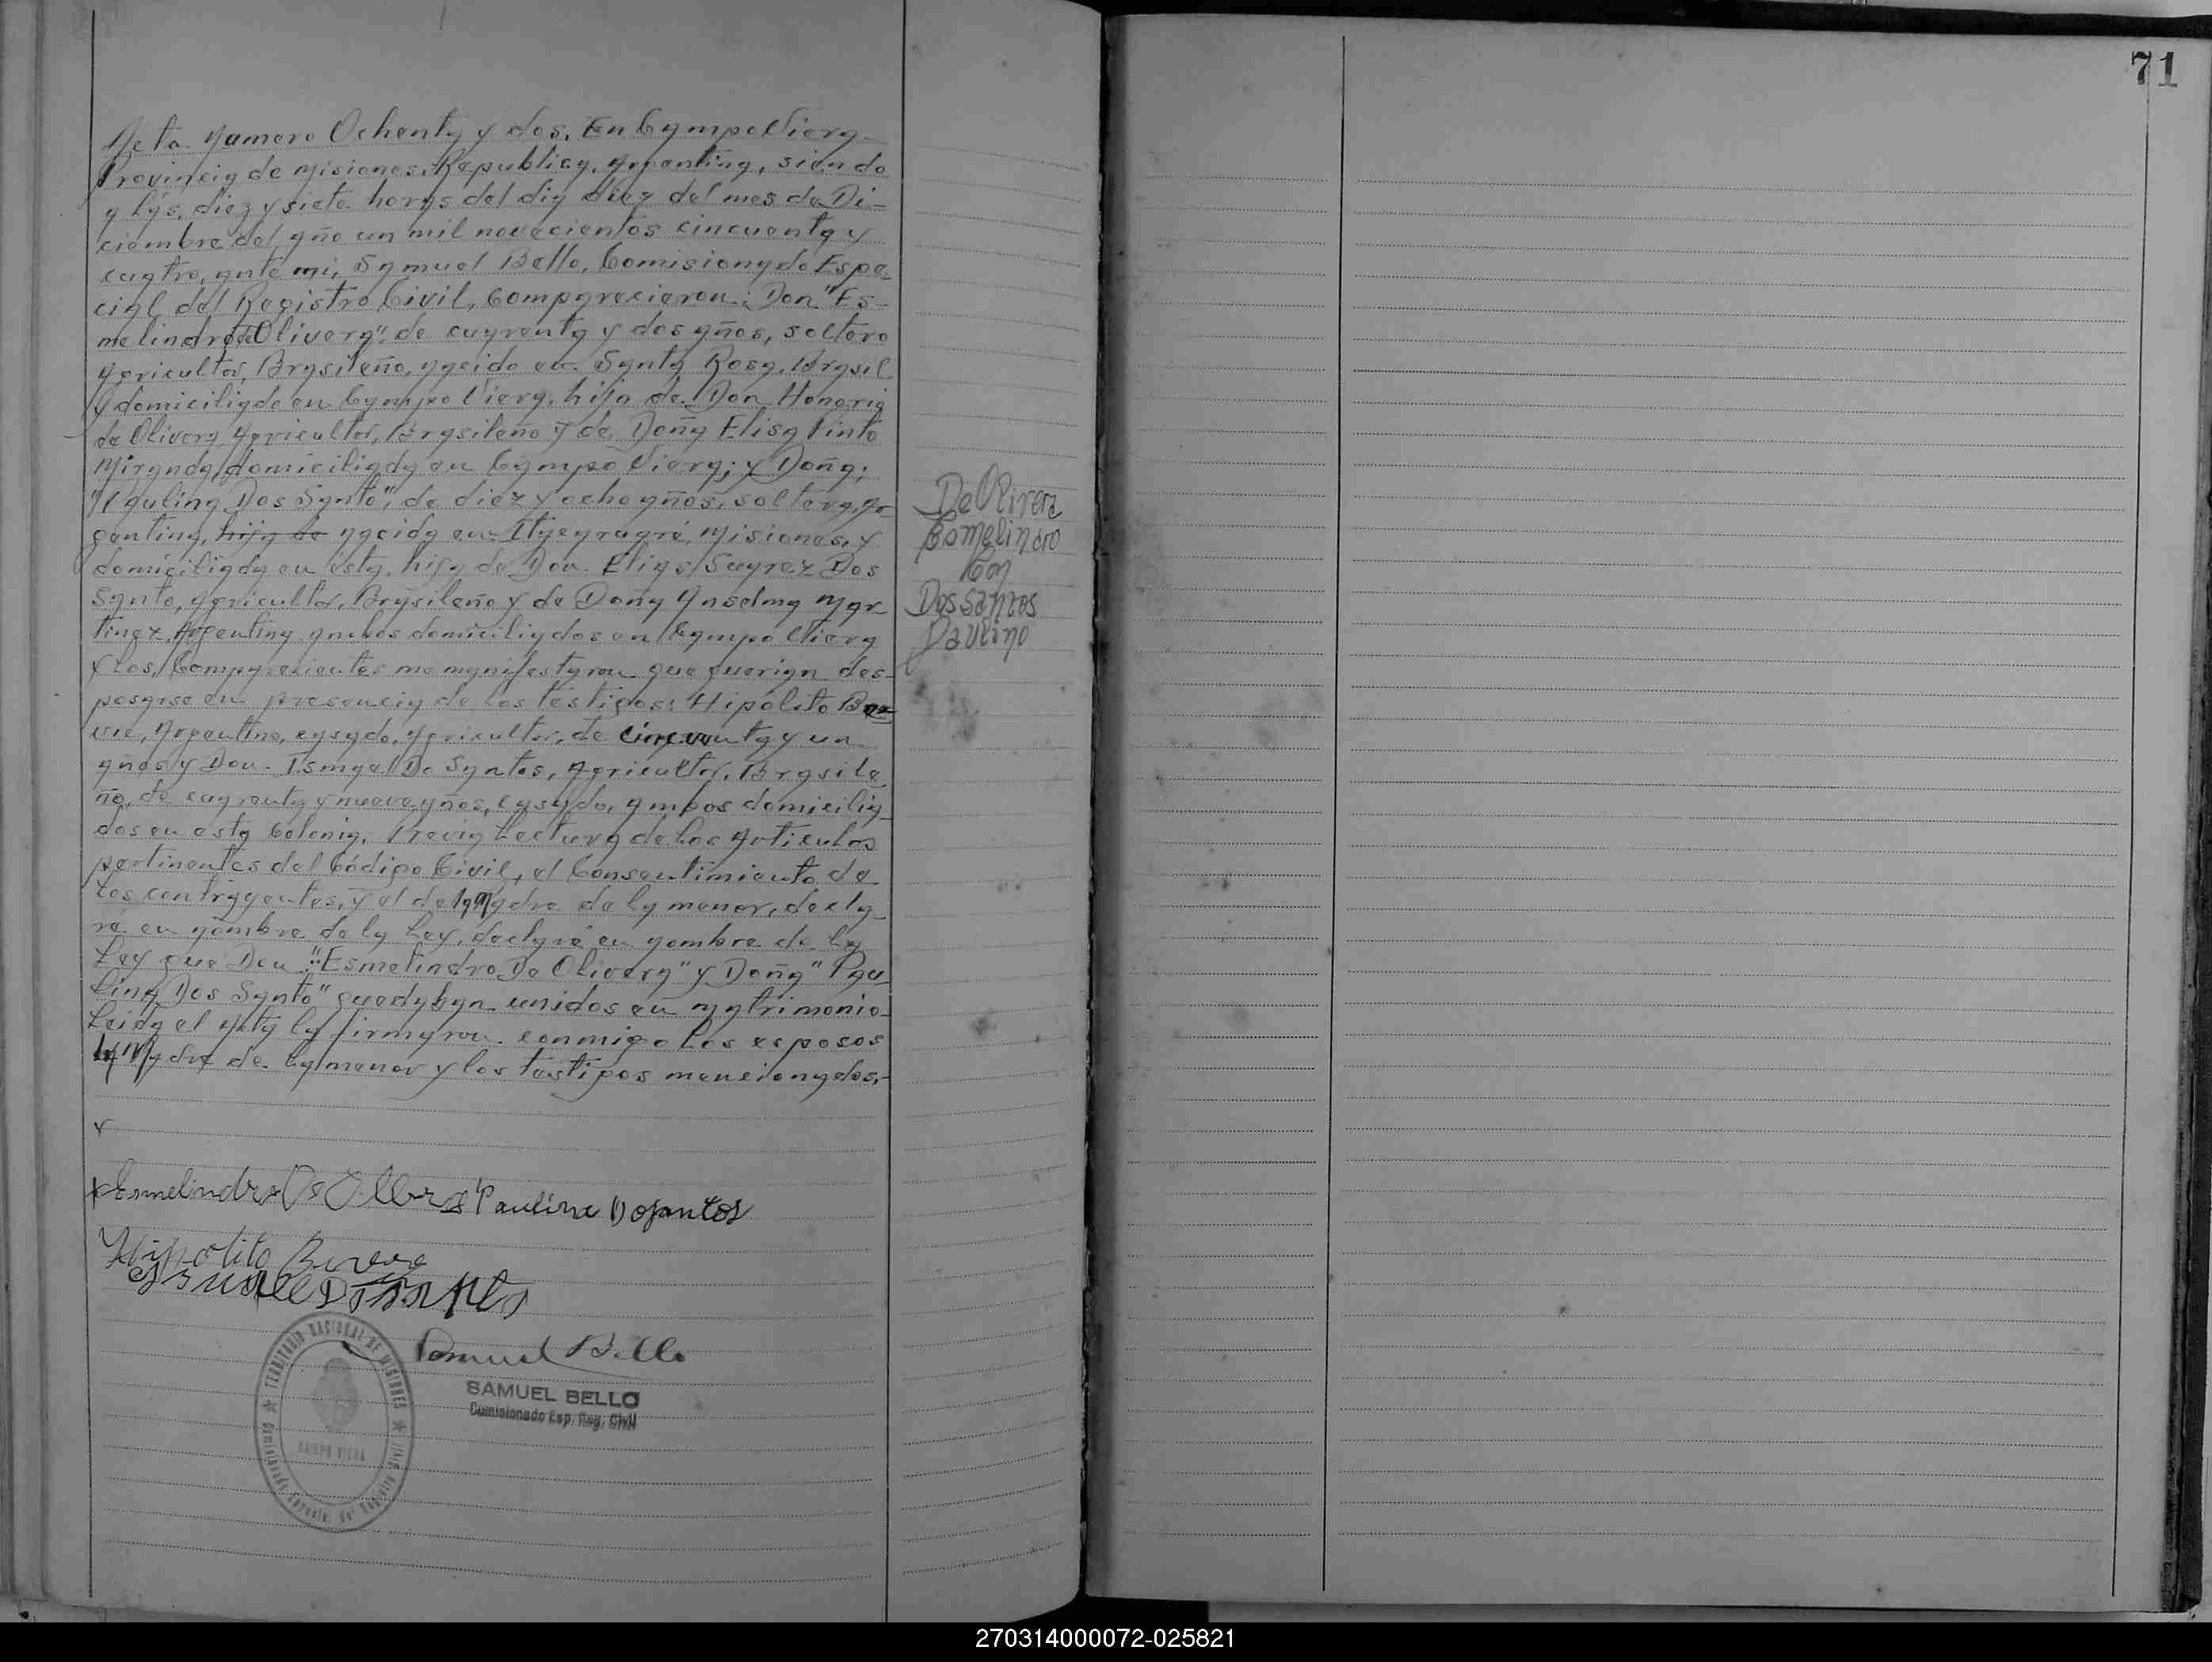 71
Acta Número Ochenta y dos, En Campo Viera
Provincia de Misiones, Republica, Argentina, siendo
a las, diez y siete horas del dia diez del mes de Di-
ciembre del año un mil novecientos cincuenta y
cuatro, ante mi, Samuel Bello, Comisionado Espe-
cial del Registro Civil, Comparecieron: Don "Es-
melindro de Olivera", de cuarenta y dos años, soltero
Agricultor, Brasileño, nacido en Santa Rosa, Brasil
y domiciliado en Campo Viera, hijo de Don Honorio
de Olivera, Agricultor, Brasileño y de Doña Elisa Pinto
Miranda, domiciliada en Campo Viera; y Doña;
"Paulina Dos Santo", de diez y ocho años, soltera, Ar-
gentina, hija de nacida en Itacaruaré, Misiones, y
domiciliada en ésta, hija de Don Elias Suarez Dos
Santo, Agricultor, Brasileño y de Doña Anselma Mar-
tinez, Argentina ambos domiciliados en Campo Viera
y Los, Comparecientes me manifestaron que querian des-
posarse en presencia de los testigos: Hipólito
Argentino, casado, Agricultor, de cincuenta y un
años y Don Ismael Do Santos, Agricultor, Brasile
ño, de cuarenta y nueve años, casado, ambos domicilia-
dos en esta Colonia. Previa Lectura de los Artículos
pertinentes del Código Civil, el Consentimiento de
los contrayentes, y el de la Madre de la menor, decla-
ré en nombre de la Ley, declaré en nombre de la
Ley que Don "Esmelindro De Olivera" y Doña "Pau-
lina Dos Santo" quedaban unidos en matrimonio
Leida el Acta la firmaron conmigo los esposos
la Madre de la menor y los testigos mencionados.-
De Olivera
Esmelindro
Con
Dos Santos
Paulina
x
x Esmelindro De Olivera Paulina Dosantos
Hipolito
Ismael Dosantos
Samuel Bello
SAMUEL BELLO
Comisionado Esp. Reg. Civil
TERRITORIO NACIONAL DE MISIONES
CAMPO VIERA
270314000072-025821